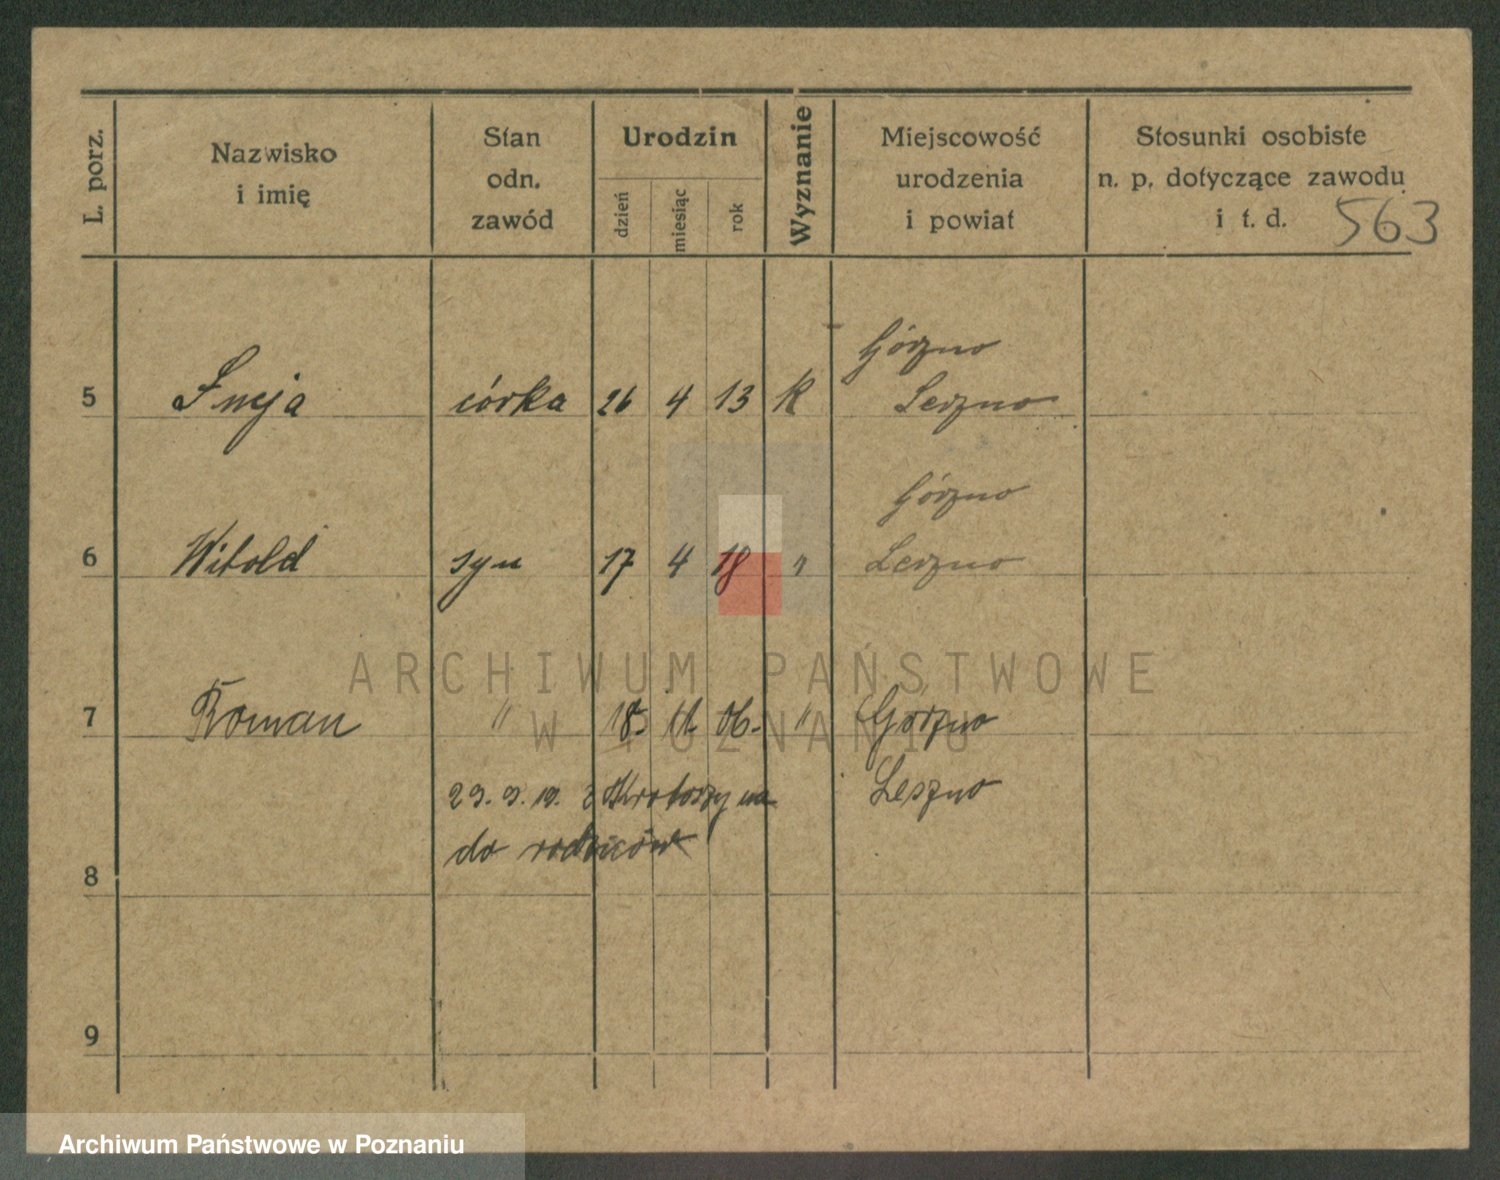 L. porz.
Nazwisko
i imię
Stan
odn.
zawód
Urodzin
dzień
miesiąc
rok
Wyznanie
Miejscowość
urodzenia
i powiat
Stosunki osobiste
n. p. dotyczące zawodu
i t. d.
563
Górzno
5 Łucja córka 26 4 13 K Leszno
Górzno
6 Witold syn 17 4 18 " Leszno
7 Roman " 18. 06. " Górzno
29. 9. 19. z Krotoszyna Leszno
do rodziców
8
9
ARCHIWUM PAŃSTWOWE
W POZNANIU
Archiwum Państwowe w Poznaniu